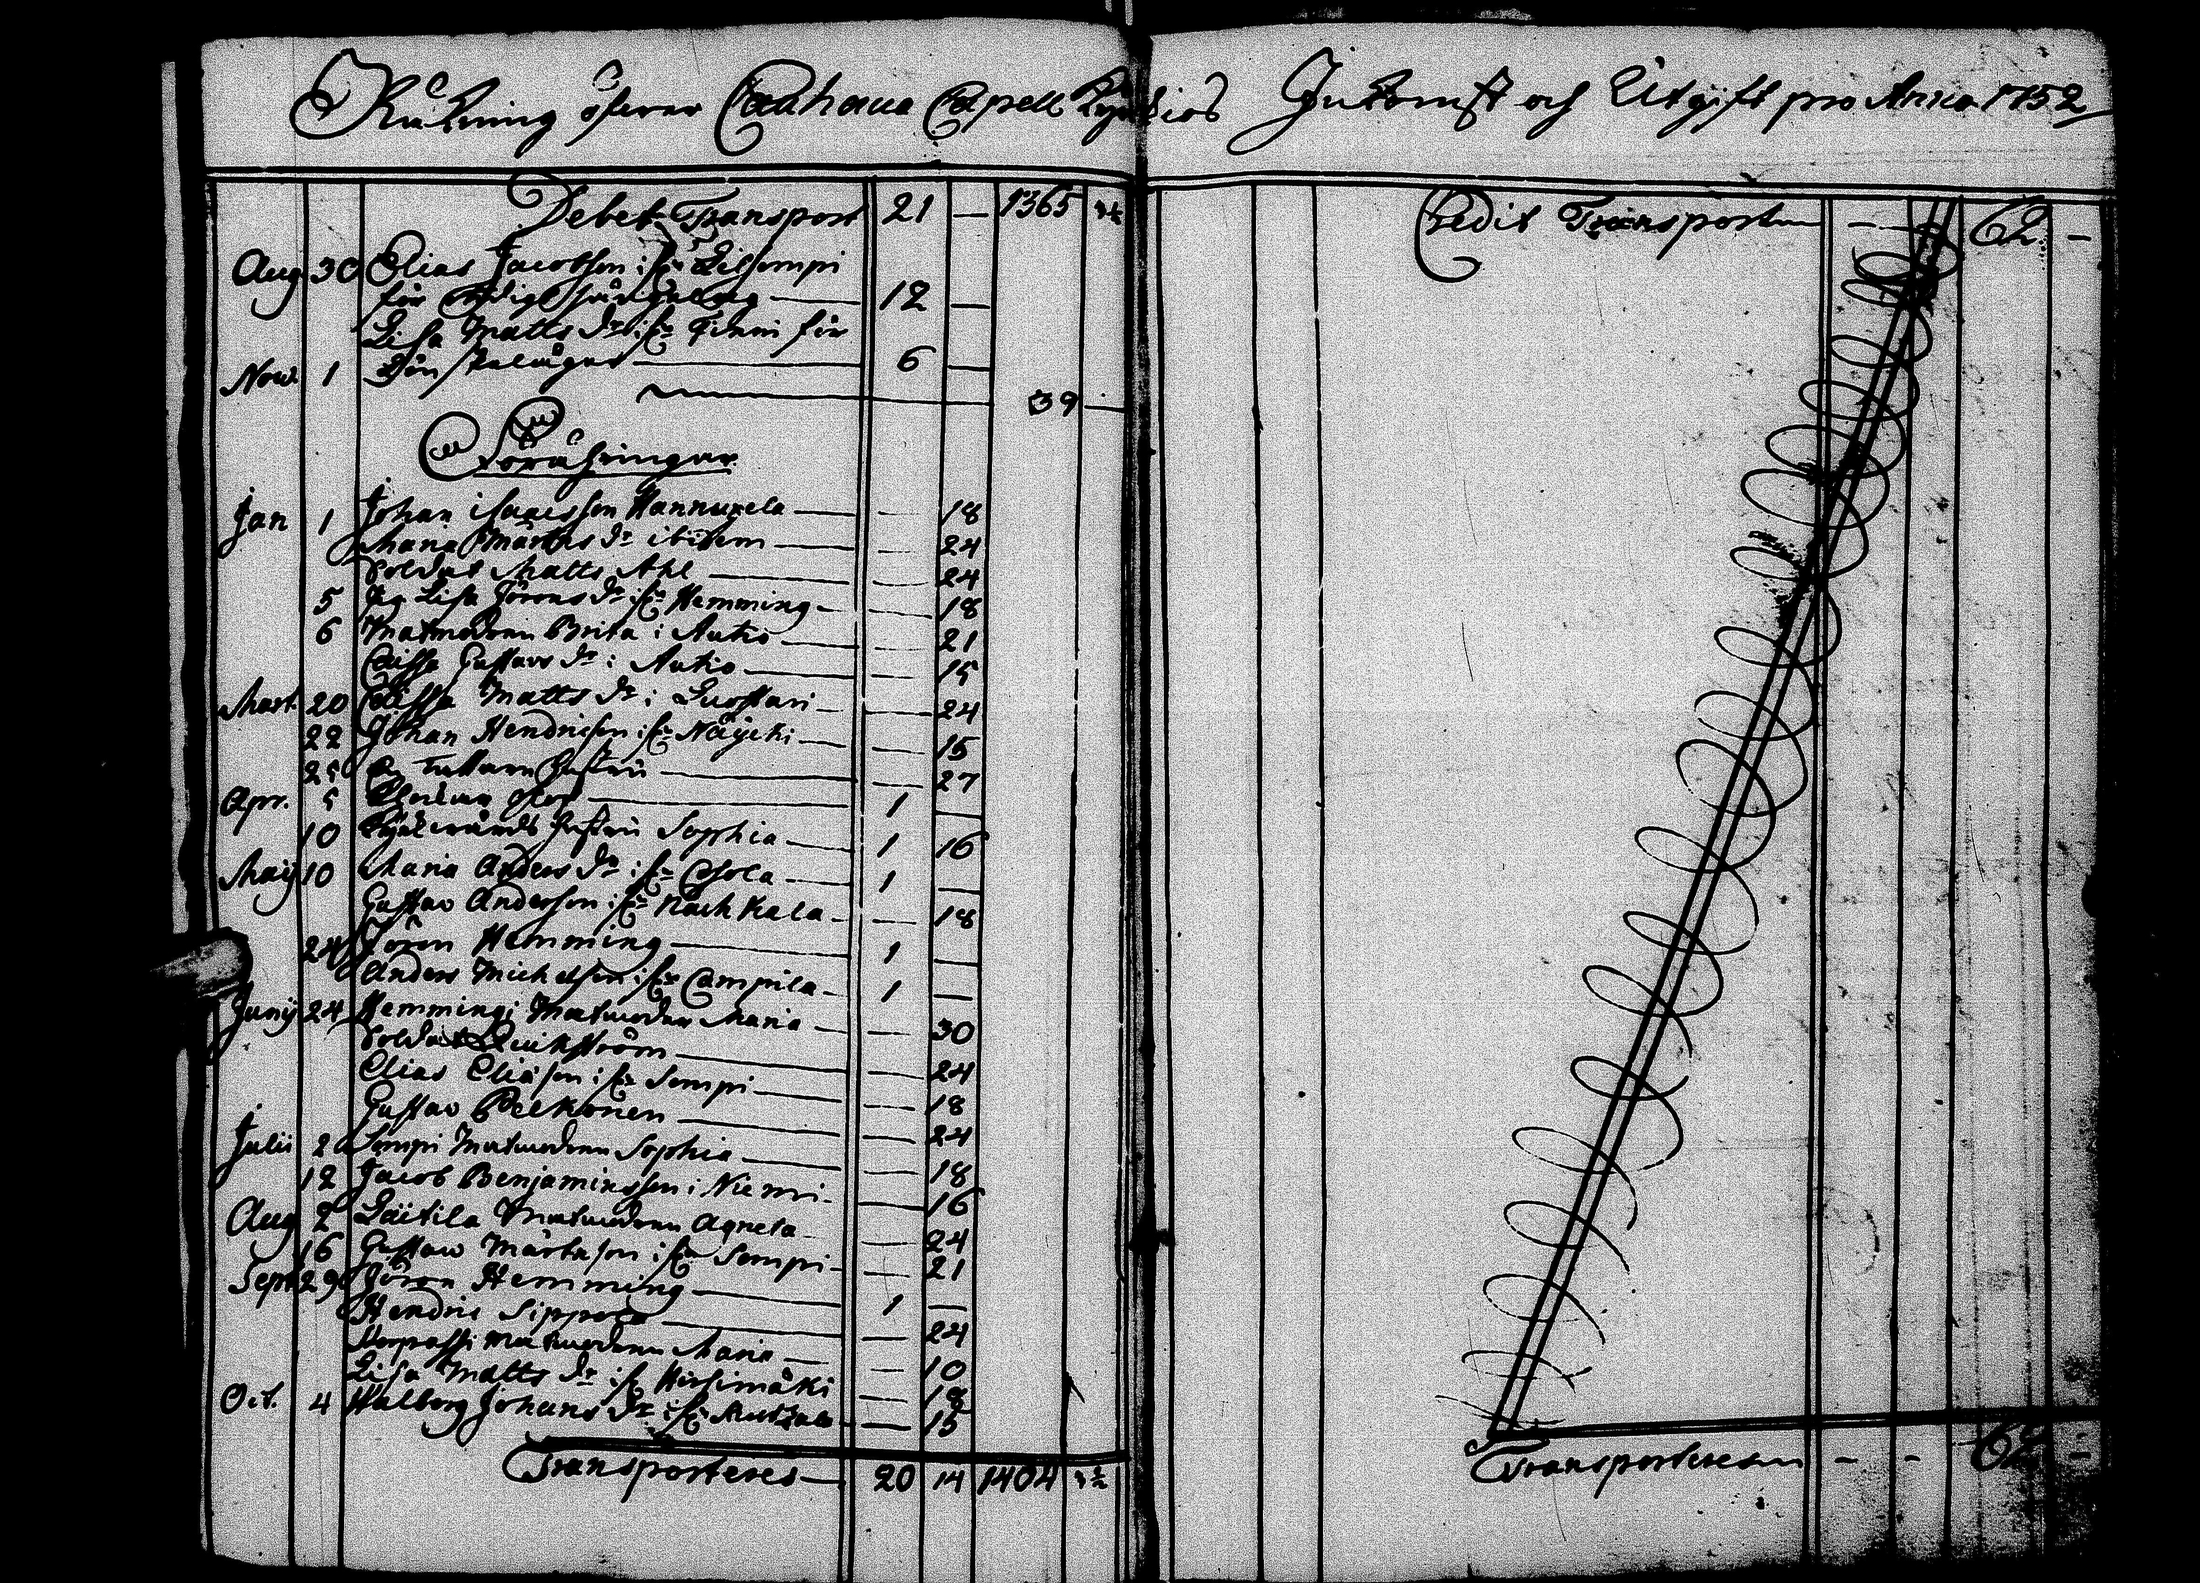 Räkning öfwer Cauhava Capell Kyrckios Inkomst och Utgift pro Anno 1752
Debet Transport 21 — 1365
Aug 30 Elias Jacobsson i Lilsempi
för 12 —
Lisa Matts dr i Finni för
Nov. 1 6 —
39 —
Förähringar
Jan 1 Johan Isacsson Hannuxela — 18
Maria Mårtens dr ibidem — 24
Soldat Matts Ahl — 24
5 Pig Lisa Görans dr Hemming — 18
6 Matmodren Brita i Autio — 21
Caisa Gustavs dr i Autio — 15
Mart. 20 Caisa Matts dr i Luostari — 24
22 Johan Hendricsson Näycki — 15
25 27
Apr. 5 1 —
10 Hustru Sophia 1 16
Maij 10 Maria Anders dr 1 —
Gustav Andersson — 18
24 Jören Hemming 1 —
Anders Michelsson Campila 1 —
Junij 24 Hemmingi Matmodren Maria — 30
Soldat Quickström — 24
Elias Eliasson Sempi — 18
Gustav Pelkonen — 24
Julii Sempi Matmodren Sophia — 18
12 Jacob Benjaminsson i Niemi — 16
Aug 2 Laitila Matmodren Agneta — 24
16 Gustav Mårtensson Sempi — 21
Sept 29 Jören Hemming 1 —
Hendric Sippola — 24
Matmodren Maria — 10
Lisa Matts dr Hirsimäki — 18
Oct. 4 Walborg Johans dr — 15
Transporteres 20 14 1404
Credit Transporten — — 62 —
Transporteres — — 62 —